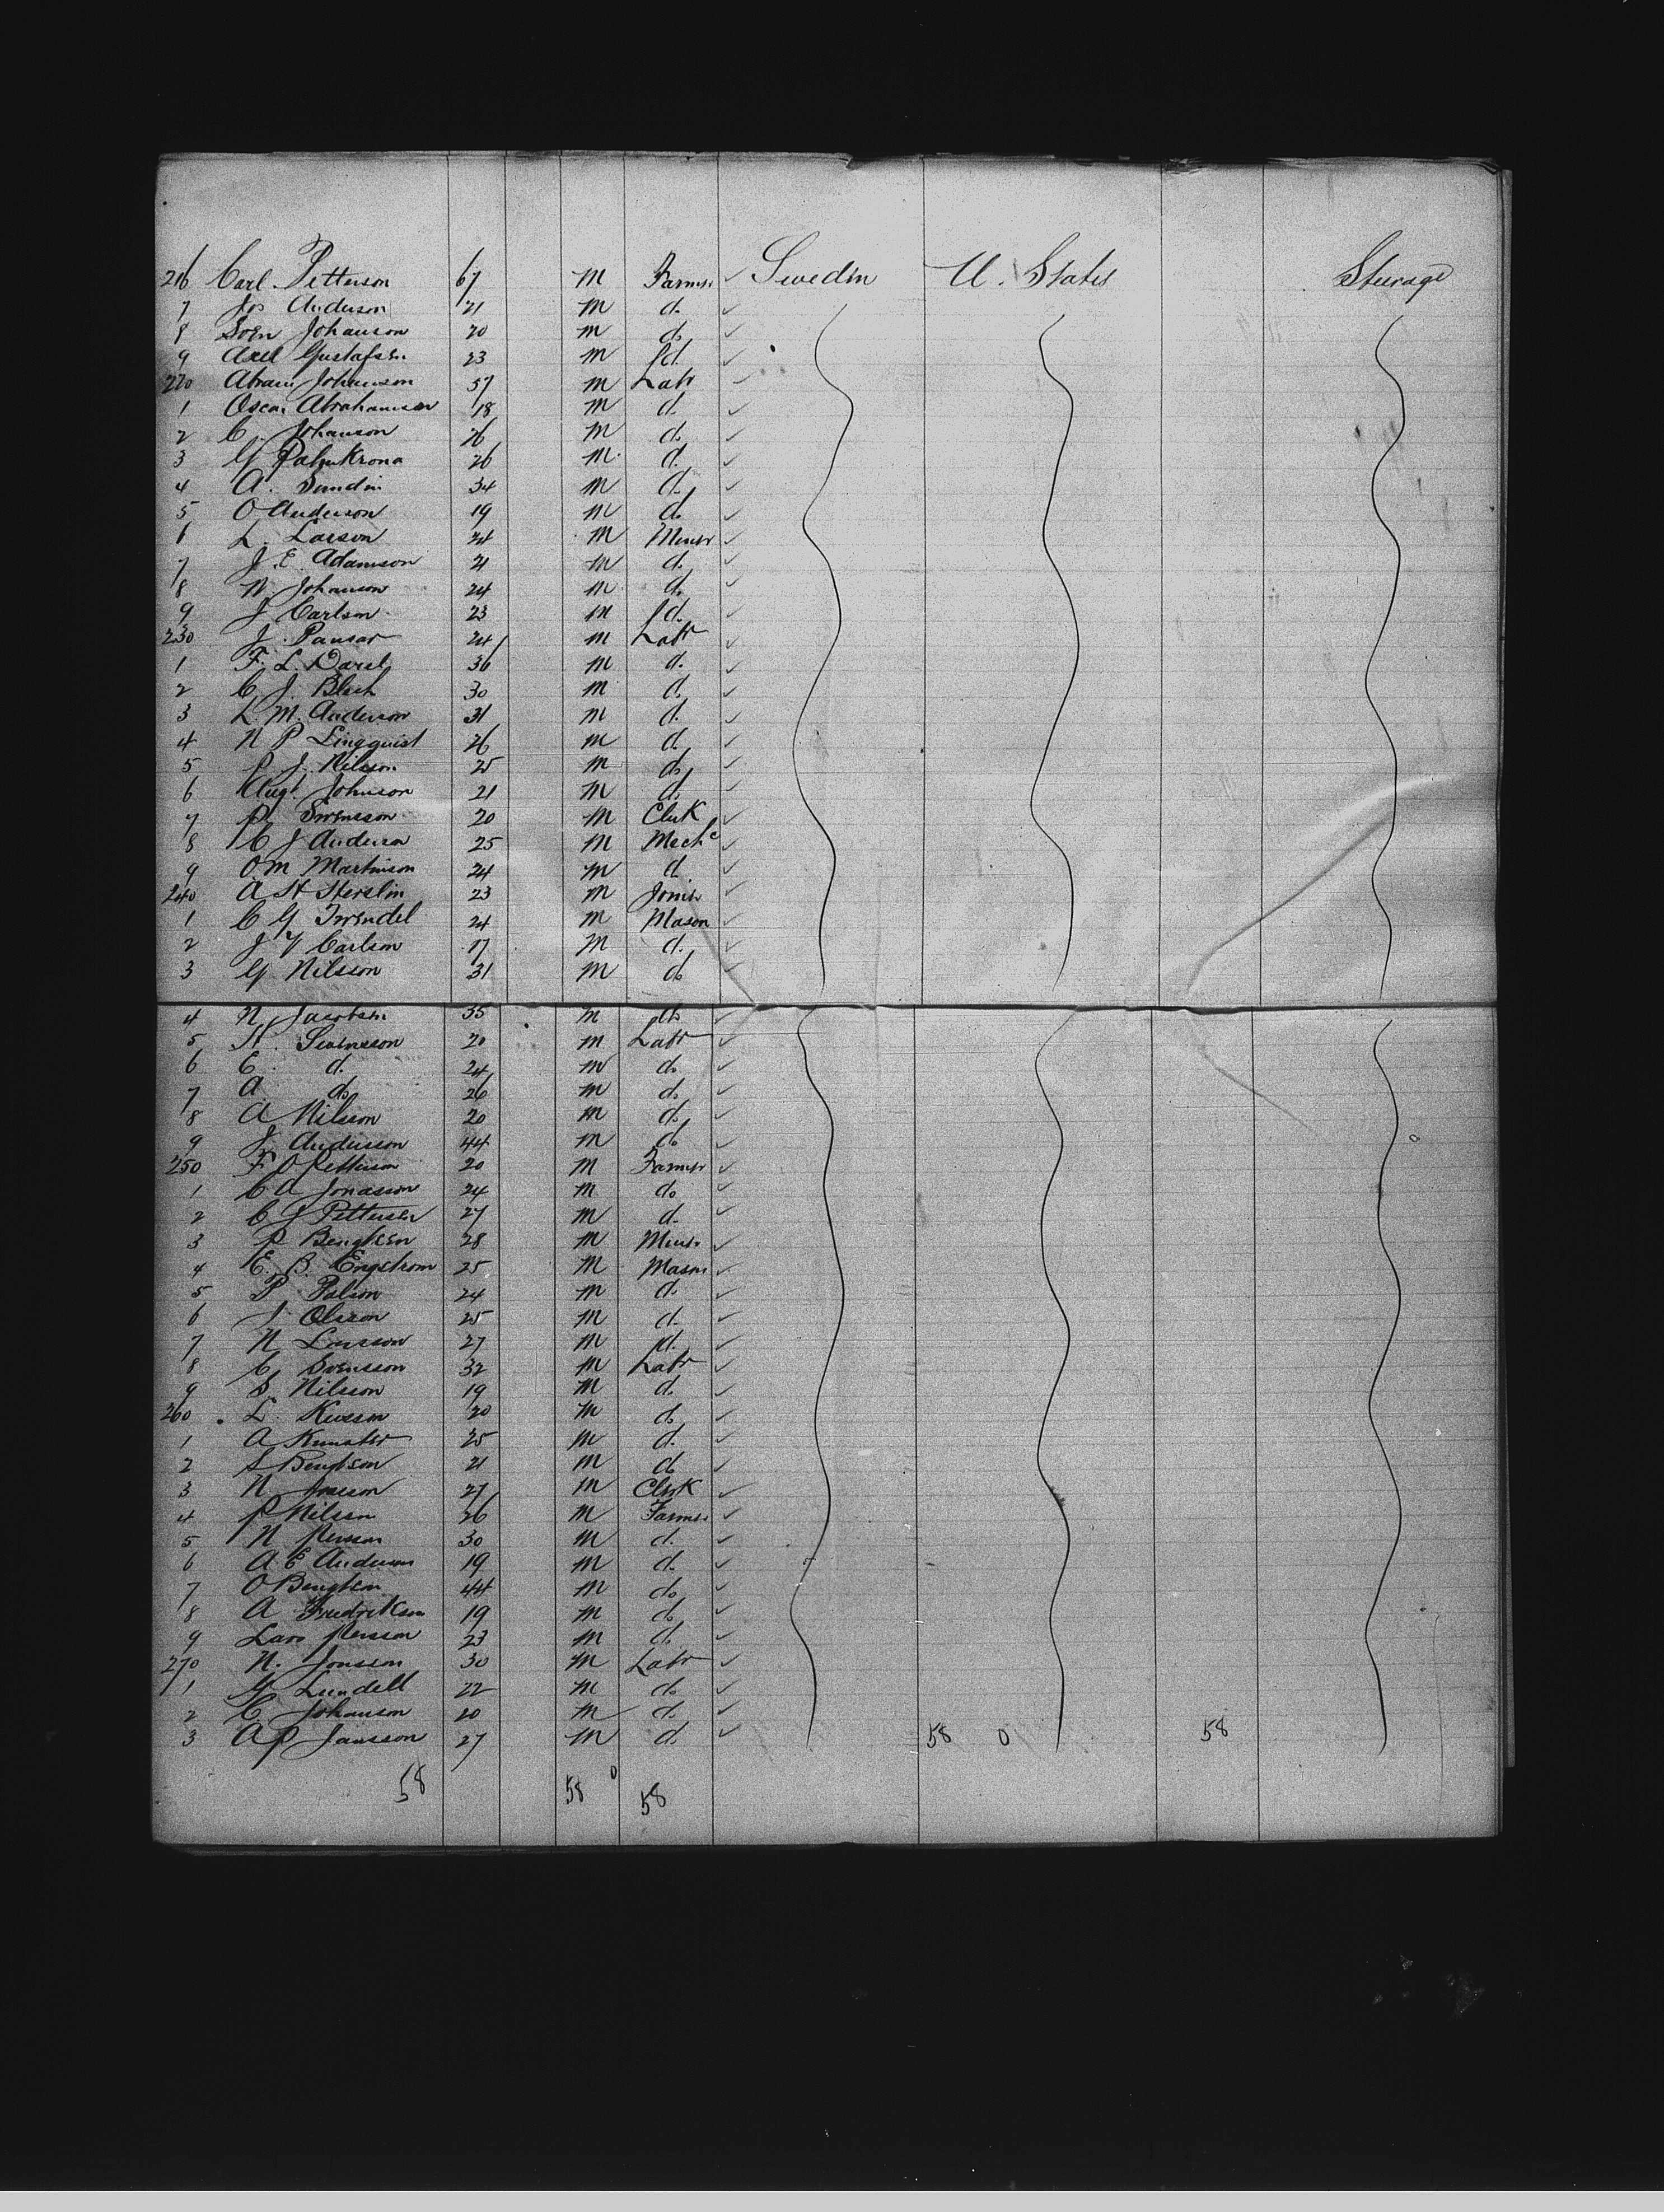 216 Carl Petterson 67 M Farmer Sweden U. States Steerage
7 Jos Anderson 21 M do
8 Sven Johanson 20 M do
9 Axel Gustafsen 23 M do
220 Abram Johanson 57 M Labr
1 Oscar Abrahamson 18 M do
2 C. Johanson 26 M do
3 G Palmkrona 26 M do
4 A. Sundin 34 M do
5 O Anderson 19 M do
6 L. Larson 24 M Miner
7 J. E. Adamson 21 M do
8 N. Johanson 24 M do
9 J Carlson 23 M do
230 J. Pansar 24 M Labr
1 F. L. 36 M do
2 C J. Bleck 30 M do
3 L. M. Anderson 31 M do
4 N P Lingquist 26 M do
5 P J. Nilsson 25 M do
6 Augt. Johnson 21 M do
7 P. Svensson 20 M Clerk
8 C J Anderson 25 M Mechc
9 O. M Martinson 24 M do
240 A H 23 M Joiner
1 C G 24 M Mason
2 J G Carlson 17 M do
3 G. Nilsson 31 M do
4 N Jacobsen 35 M do
5 H. Svensson 20 M Labr
6 C. do 24 M do
7 A do 26 M do
8 A Nilsson 20 M do
9 J. Andersson 44 M do
250 F O Petterson 20 M Farmer
1 C A Jonasson 24 M do
2 C J Petterson 27 M do
3 P Bengtson 28 M Miner
4 E. B. Engstrom 25 M Mason
5 P Palson 24 M do
6 J Olsson 25 M do
7 N Larsson 27 M do
8 C Svensson 32 M Labr
9 S. Nilsson 19 M do
260 L. 20 M do
1 A 25 M do
2 S Bengtson 21 M do
3 N 27 M Clerk
4 P Nilsson 26 M Farmer
5 N Persson 30 M do
6 A E Anderson 19 M do
7 O Bengtson 44 M do
8 A Fredrikson 19 M do
9 Lars Persson 23 M do
270 N. Jonsson 30 M Labr
1 G Lundell 22 M do
2 C. Johanson 20 M do
3 A P Jansson 27 M do 58 0 58
58 58 0 58